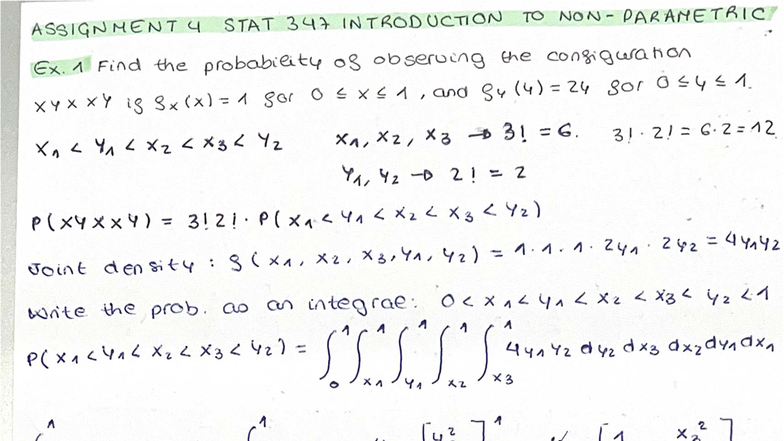 ASSIGNMENT 4 STAT 347 INTRODUCTION TO NON-PARAMETRIC
Ex. 1 Find the probability of observing the configuration
XYXXY if fx(x) = 1 for 0 ≤ x ≤ 1, and fy(y) = 2y for 0 ≤ y ≤ 1.
X1 < Y1 < X2 < X3 < Y2 X1, X2, X3 → 3! = 6. 3! · 2! = 6 · 2 = 12
Y1, Y2 → 2! = 2
P(XYXXY) = 3!2! · P(X1 < Y1 < X2 < X3 < Y2)
Joint density: f(x1, x2, x3, y1, y2) = 1 · 1 · 1 · 2y1 · 2y2 = 4y1y2
Write the prob. as an integral: 0 < x1 < y1 < x2 < x3 < y2 < 1
P(X1 < Y1 < X2 < X3 < Y2) = ∫₀¹ ∫x1¹ ∫y1¹ ∫x2¹ ∫x3¹ 4y1y2 dy2 dx3 dx2 dy1 dx1